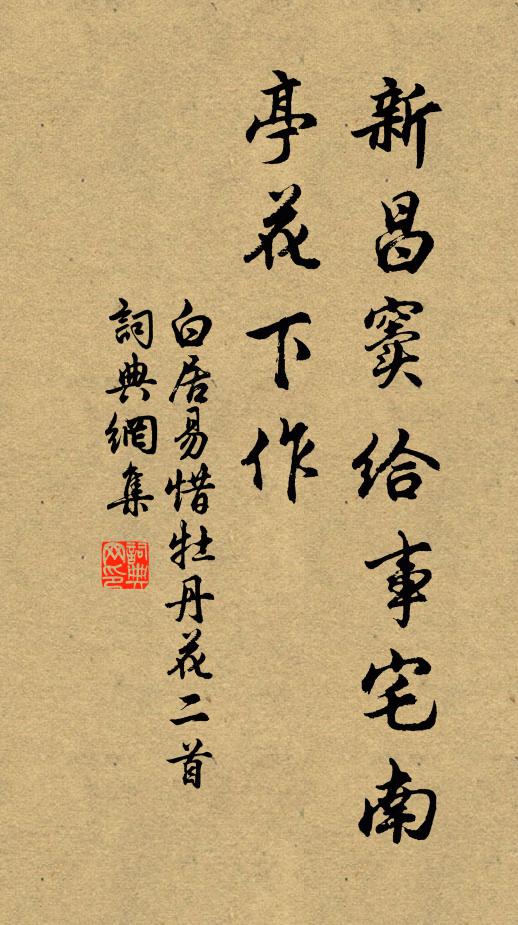 新昌窦给事宅南
亭花下作
白居易惜牡丹花二首
詞典網集
詞典
网印